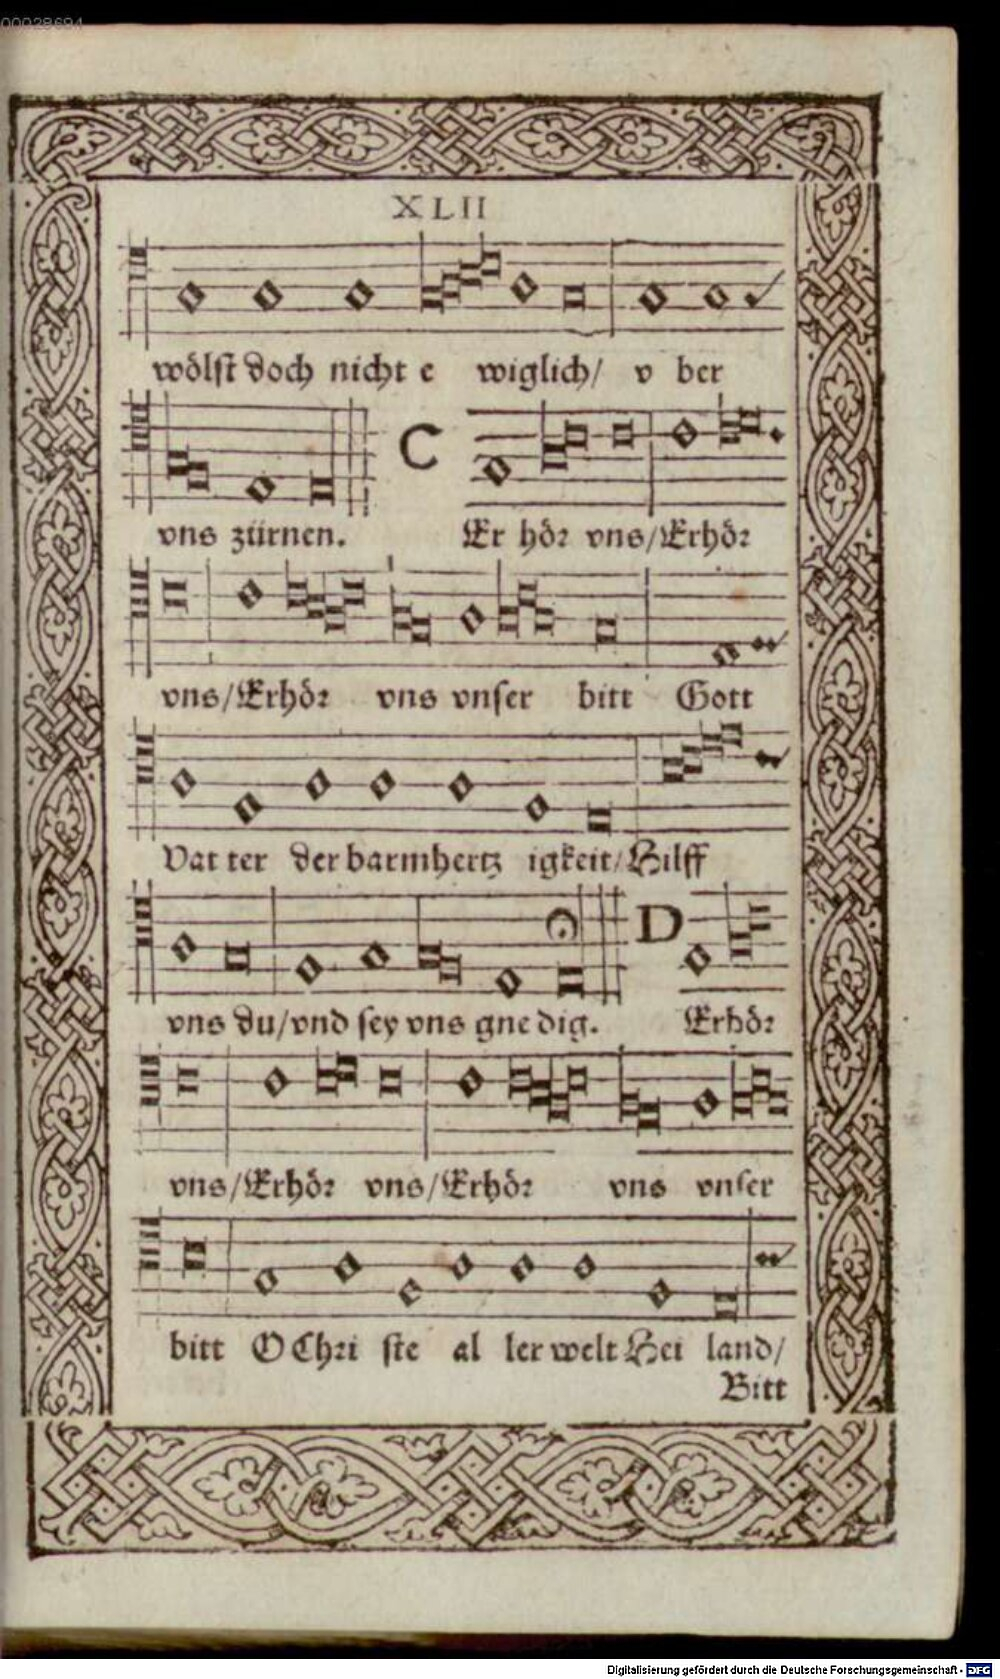 00028694
XLII
wölst doch nicht e wiglich/ v ber
C
vns zürnen. Er hör vns/Erhör
vns/Erhör vns vnser bitt Gott
Vat ter der barmhertz igkeit/Hilff
D
vns du/vnd sey vns gne dig. Erhör
vns/Erhör vns/Erhör vns vnser
bitt O Chri ste al ler welt Hei land/
Bitt
Digitalisierung gefördert durch die Deutsche Forschungsgemeinschaft - DFG